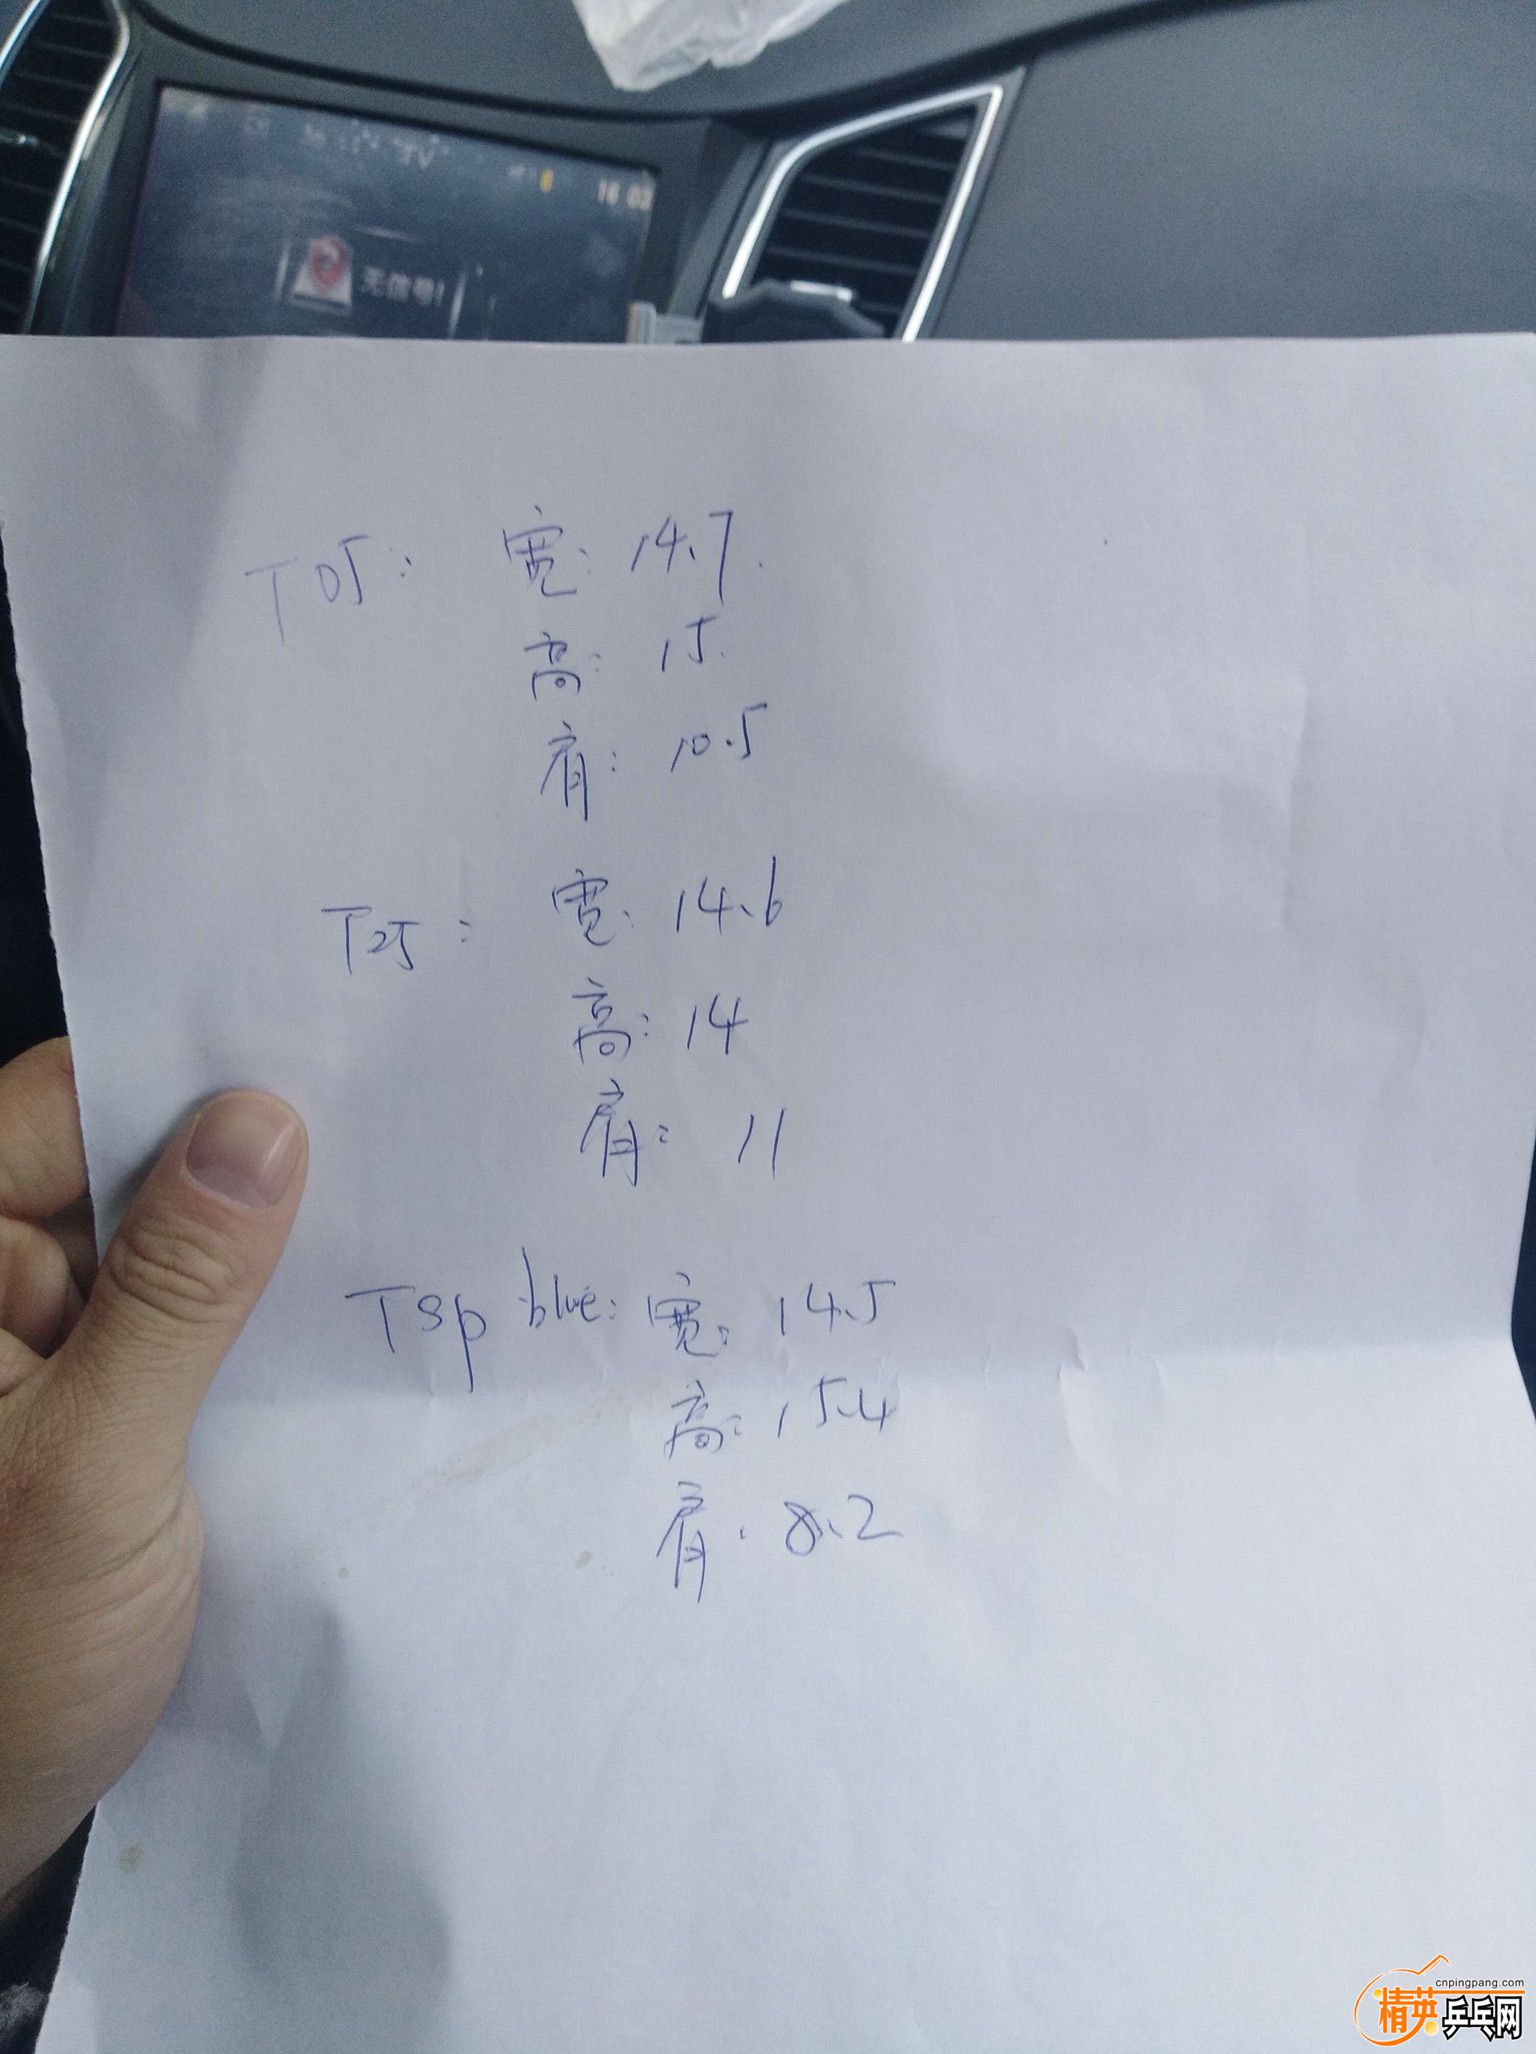 16 03
无信号!
T05: 宽: 14.7.
高: 15.
肩: 10.5
T25: 宽: 14.6
高: 14
肩: 11
TSp blue: 宽: 14.5
高: 15.4
肩: 8.2
cnpingpang.com
精英乒乓网